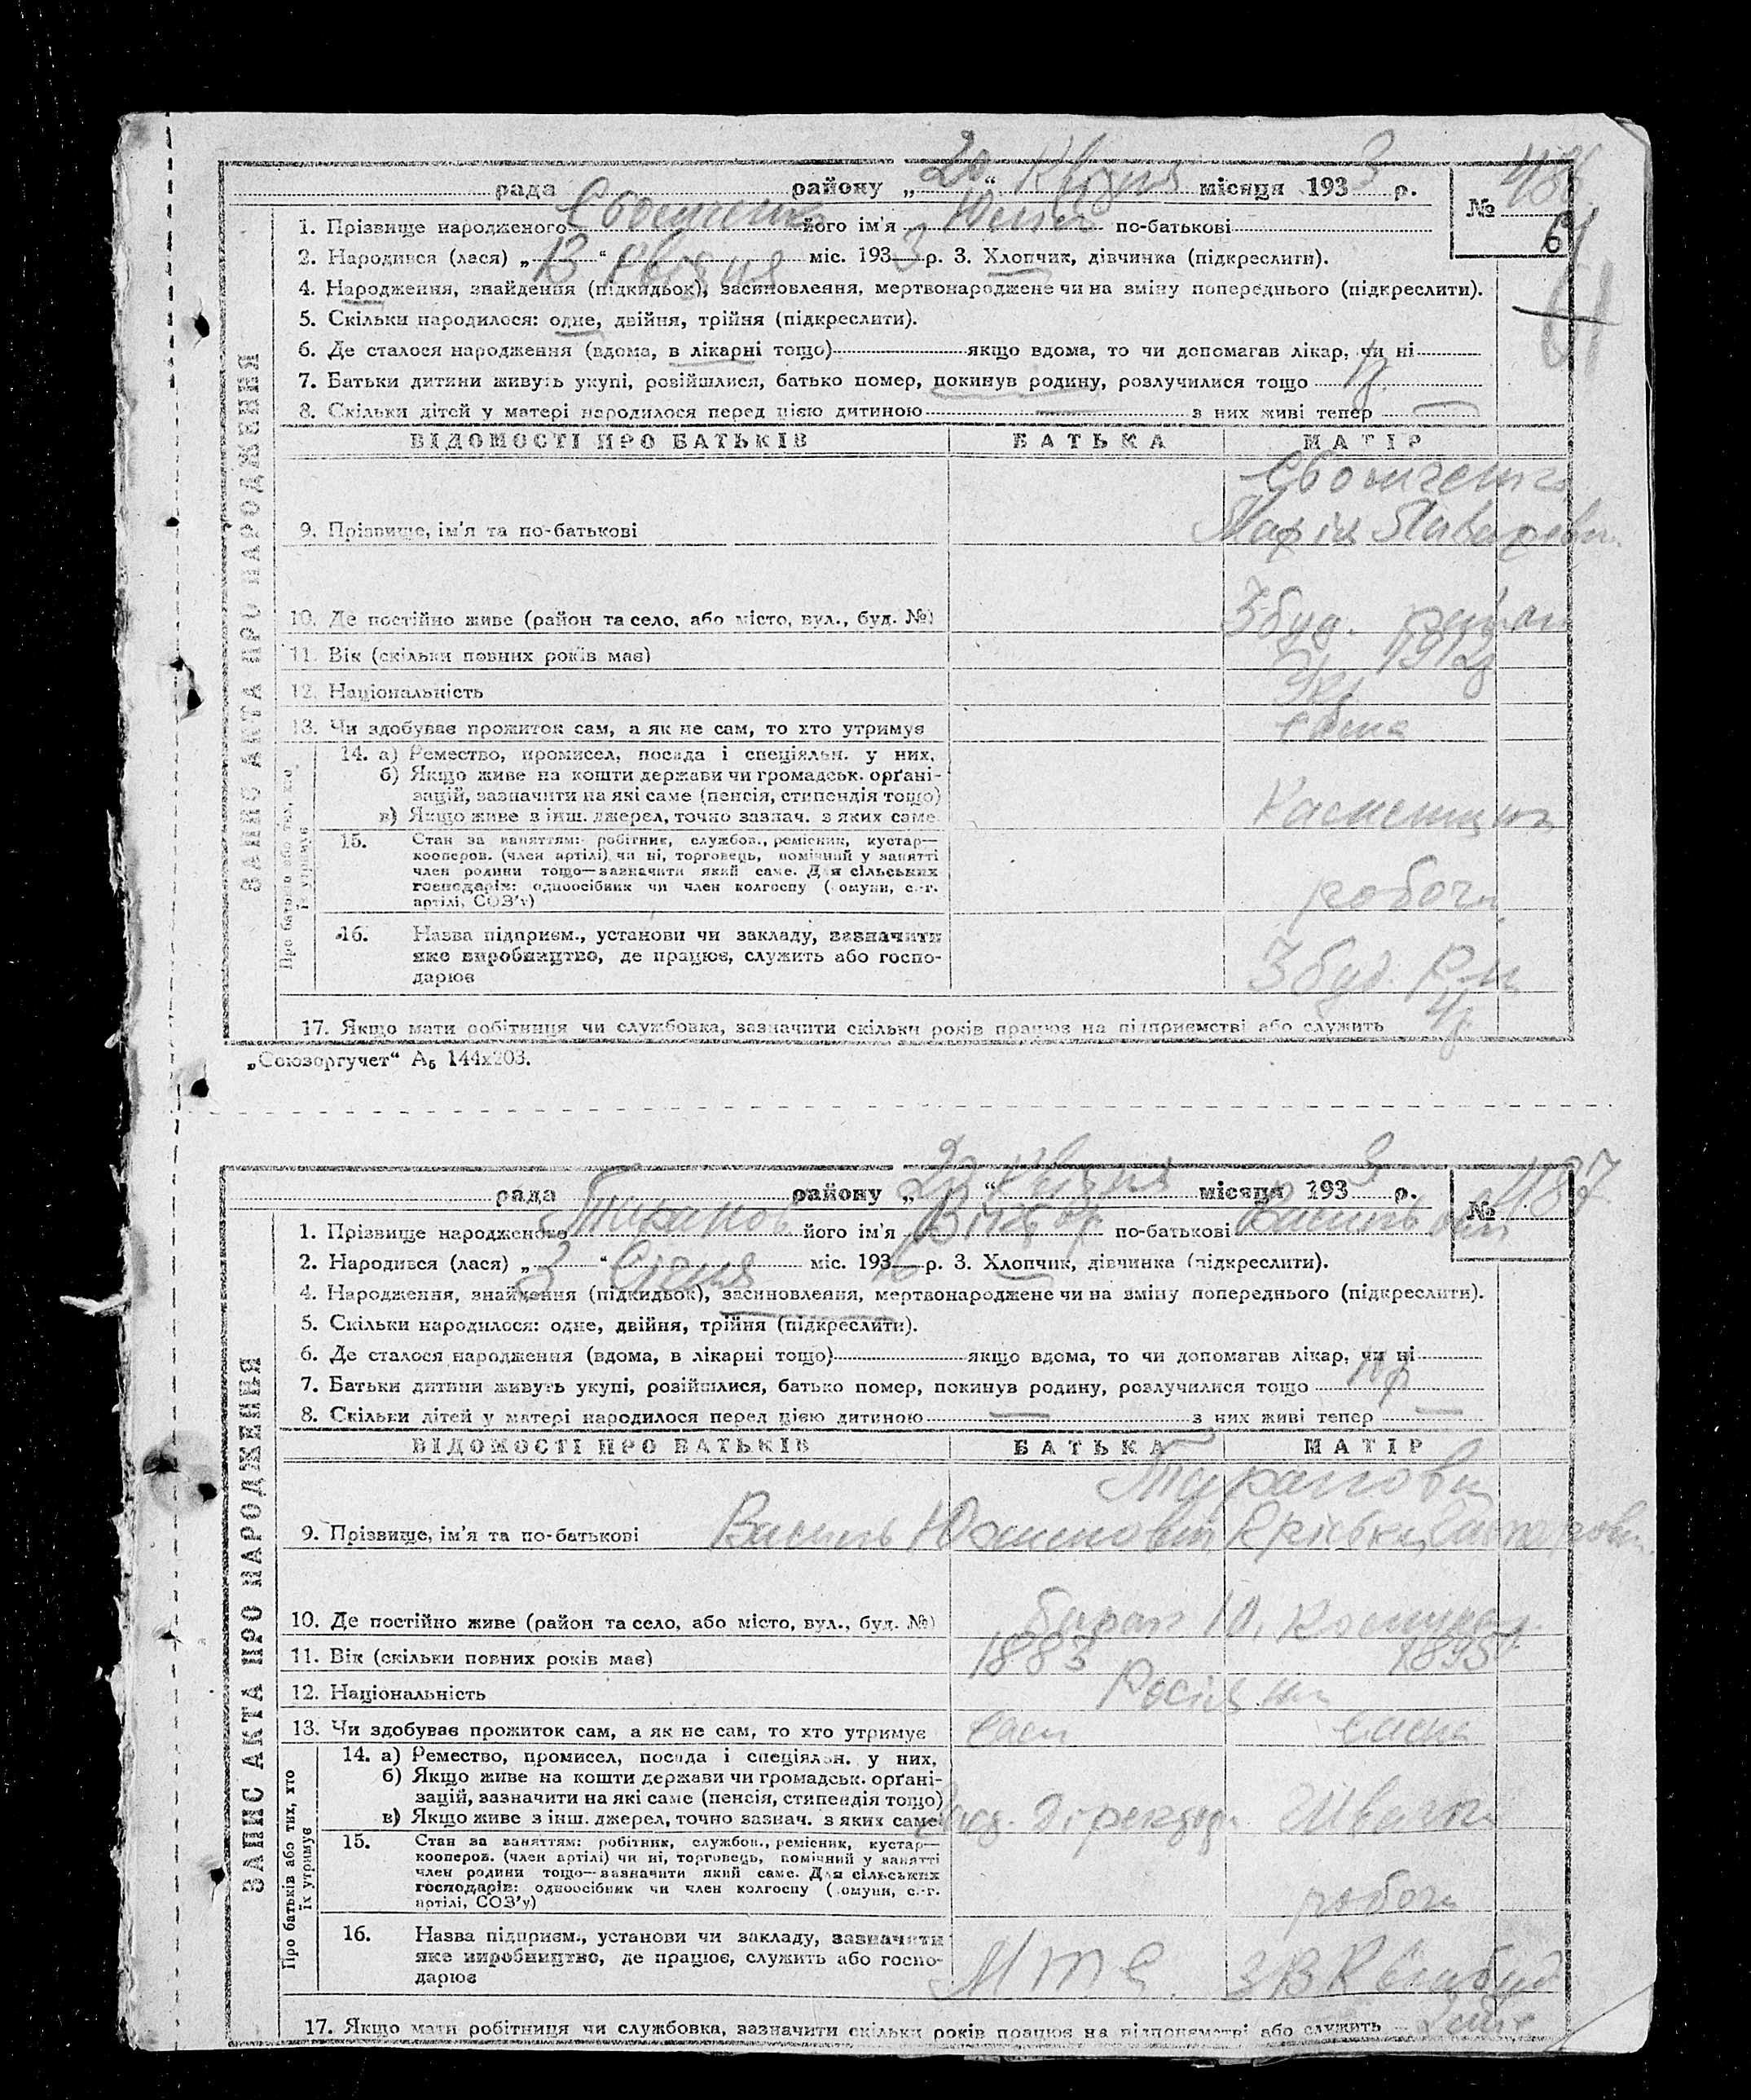 рада району „20“ Квітня місяця 1933 р.
№ 486
61
61
1. Прізвище народженого його ім'я по-батькові
2. Народився (лася) „13“ Квітня міс. 1933 р. 3. Хлопчик, дівчинка (підкреслити).
4. Народження, знайдення (підкидьок), засиновлення, мертвонароджене чи на зміну попереднього (підкреслити).
5. Скільки народилося: одне, двійня, трійня (підкреслити).
6. Де сталося народження (вдома, в лікарні тощо) якщо вдома, то чи допомагав лікар, чи ні
7. Батьки дитини живуть укупі, розійшлися, батько помер, покинув родину, розлучилися тощо
8. Скільки дітей у матері народилося перед цією дитиною — з них живі тепер —
ЗАПИС АКТА ПРО НАРОДЖЕННЯ
ВІДОМОСТІ ПРО БАТЬКІВ БАТЬКА МАТІР
9. Прізвище, ім'я та по-батькові Марія
10. Де постійно живе (район та село, або місто, вул., буд. №) 3 буд.
11. Вік (скільки повних років має) 1912
12. Національність Укр
13. Чи здобуває прожиток сам, а як не сам, то хто утримує сама
Про батьків або тих, хто їх утримує
14. а) Ремество, промисел, посада і спеціяльн. у них.
б) Якщо живе на кошти держави чи громадськ. орґані-
зацій, зазначити на які саме (пенсія, стипендія тощо)
в) Якщо живе з інш. джерел, точно зазнач. з яких саме
15. Стан за заняттям: робітник, службов., ремісник, кустар—
кооперов. (член артілі) чи ні, торговець, помічний у занятті
член родини тощо—зазначити який саме. Для сільських
господарів: одноосібник чи член колгоспу (комуни, с.-г.
артілі, СОЗ'у) робоч
16. Назва підприєм., установи чи закладу, зазначити
яке виробництво, де працює, служить або госпо-
дарює 3 буд.
17. Якщо мати робітниця чи службовка, зазначити скільки років працює на підприємстві або служить
„Союзоргучет“ А5 144х203.
рада району „20“ Квітня місяця 1933 р.
№ 487
1. Прізвище народженого його ім'я Віктор по-батькові
2. Народився (лася) „3“ Січня міс. 193 р. 3. Хлопчик, дівчинка (підкреслити).
4. Народження, знайдення (підкидьок), засиновлення, мертвонароджене чи на зміну попереднього (підкреслити).
5. Скільки народилося: одне, двійня, трійня (підкреслити).
6. Де сталося народження (вдома, в лікарні тощо) якщо вдома, то чи допомагав лікар, чи ні
7. Батьки дитини живуть укупі, розійшлися, батько помер, покинув родину, розлучилися тощо
8. Скільки дітей у матері народилося перед цією дитиною — з них живі тепер —
ЗАПИС АКТА ПРО НАРОДЖЕННЯ
ВІДОМОСТІ ПРО БАТЬКІВ БАТЬКА МАТІР
9. Прізвище, ім'я та по-батькові Василь
10. Де постійно живе (район та село, або місто, вул., буд. №) барак 10,
11. Вік (скільки повних років має) 1883 1895
12. Національність
13. Чи здобуває прожиток сам, а як не сам, то хто утримує сам сама
Про батьків або тих, хто їх утримує
14. а) Ремество, промисел, посада і спеціяльн. у них.
б) Якщо живе на кошти держави чи громадськ. орґані-
зацій, зазначити на які саме (пенсія, стипендія тощо)
в) Якщо живе з інш. джерел, точно зазнач. з яких саме Швачка
15. Стан за заняттям: робітник, службов., ремісник, кустар—
кооперов. (член артілі) чи ні, торговець, помічний у занятті
член родини тощо—зазначити який саме. Для сільських
господарів: одноосібник чи член колгоспу (комуни, с.-г.
артілі, СОЗ'у) робоч
16. Назва підприєм., установи чи закладу, зазначити
яке виробництво, де працює, служить або госпо-
дарює МТС
17. Якщо мати робітниця чи службовка, зазначити скільки років працює на підприємстві або служить